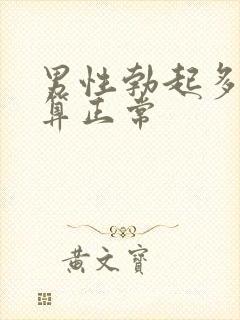 男性勃起多
算正常
黄文寶